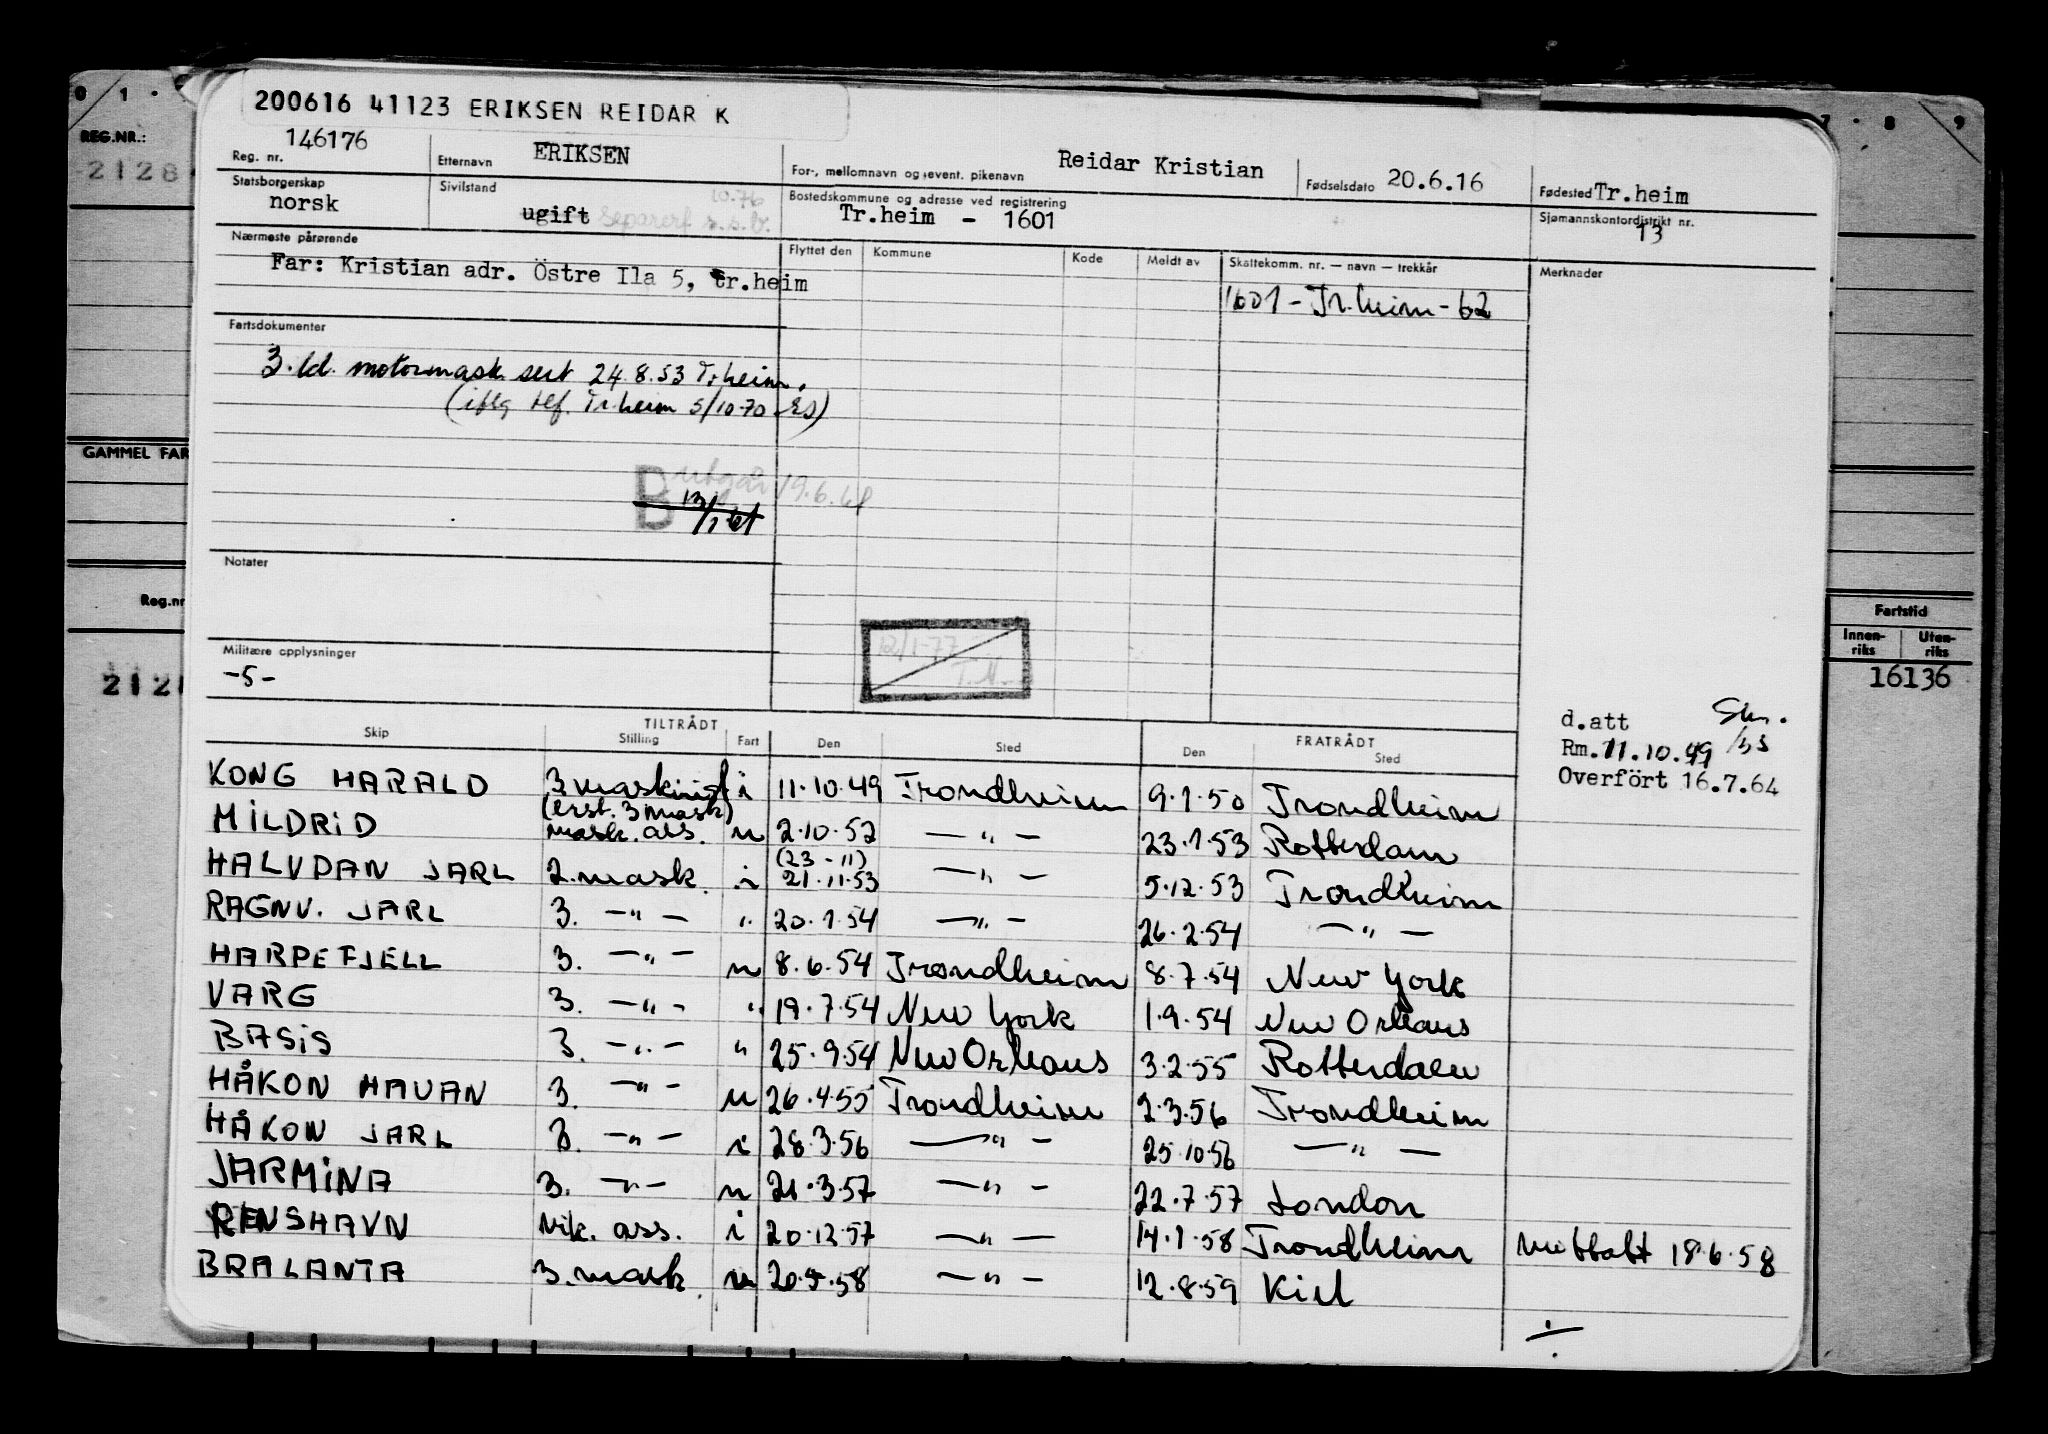 200616 41123 ERIKSEN REIDAR K
REG.NR.:
Reg. nr. 146176
Etternavn ERIKSEN
For-, mellomnavn og event. pikenavn Reidar Kristian
Fødselsdato 20.6.16
Fødested Tr.heim
Statsborgerskap
norsk
Sivilstand 10.76
ugift Separert s.s.b.
Bostedskommune og adresse ved registrering
Tr.heim - 1601
Sjømannskontordistrikt nr.
13
Nærmeste pårørende
Far: Kristian adr. Östre Ila 5, Tr.heim
Flyttet den Kommune Kode Meldt av Skattekomm. nr. — navn — trekkår Merknader
1601 - Tr.heim - 62
Fartsdokumenter
3. kl. motormask. sert 24.8.53 Tr.heim.
(iflg tlf. Tr.heim 5/10-70 ES)
B utgår 19.6.61
13/1 61
Notater
12/1-77
Militære opplysninger
-5-
GAMMEL FAR
Reg.nr
Fartstid
Innen-riks Uten-riks
16136
d.att
Rm. 11.10.49
Overfört 16.7.64
TILTRÅDT FRATRÅDT
Skip Stilling Fart Den Sted Den Sted
KONG HARALD 3 maskinist i 11.10.49 Trondheim 9.1.50 Trondheim
(erst. 3 mask)
MILDRID mask. ass. u 2.10.52 —"— 23.1.53 Rotterdam
(23-11)
HALVDAN JARL 2. mask. i 21.11.53 —"— 5.12.53 Trondheim
RAGNV. JARL 3. —"— " 20.1.54 —"— 26.2.54 —"—
HARPEFJELL 3. —"— u 8.6.54 Trondheim 8.7.54 New York
VARG 3. —"— " 19.7.54 New York 1.9.54 New Orleans
BASIS 3. —"— " 25.9.54 New Orleans 3.2.55 Rotterdam
HÅKON HAUAN 3. —"— u 26.4.55 Trondheim 2.3.56 Trondheim
HÅKON JARL 3. —"— i 28.3.56 —"— 25.10.56 —"—
JARMINA 3. —"— u 21.3.57 —"— 22.7.57 London
RENSHAVN vik. ass. i 20.12.57 —"— 14.1.58 Trondheim 18.6.58
BRALANTA 3. mask. u 20.5.58 —"— 12.8.59 Kiel
÷